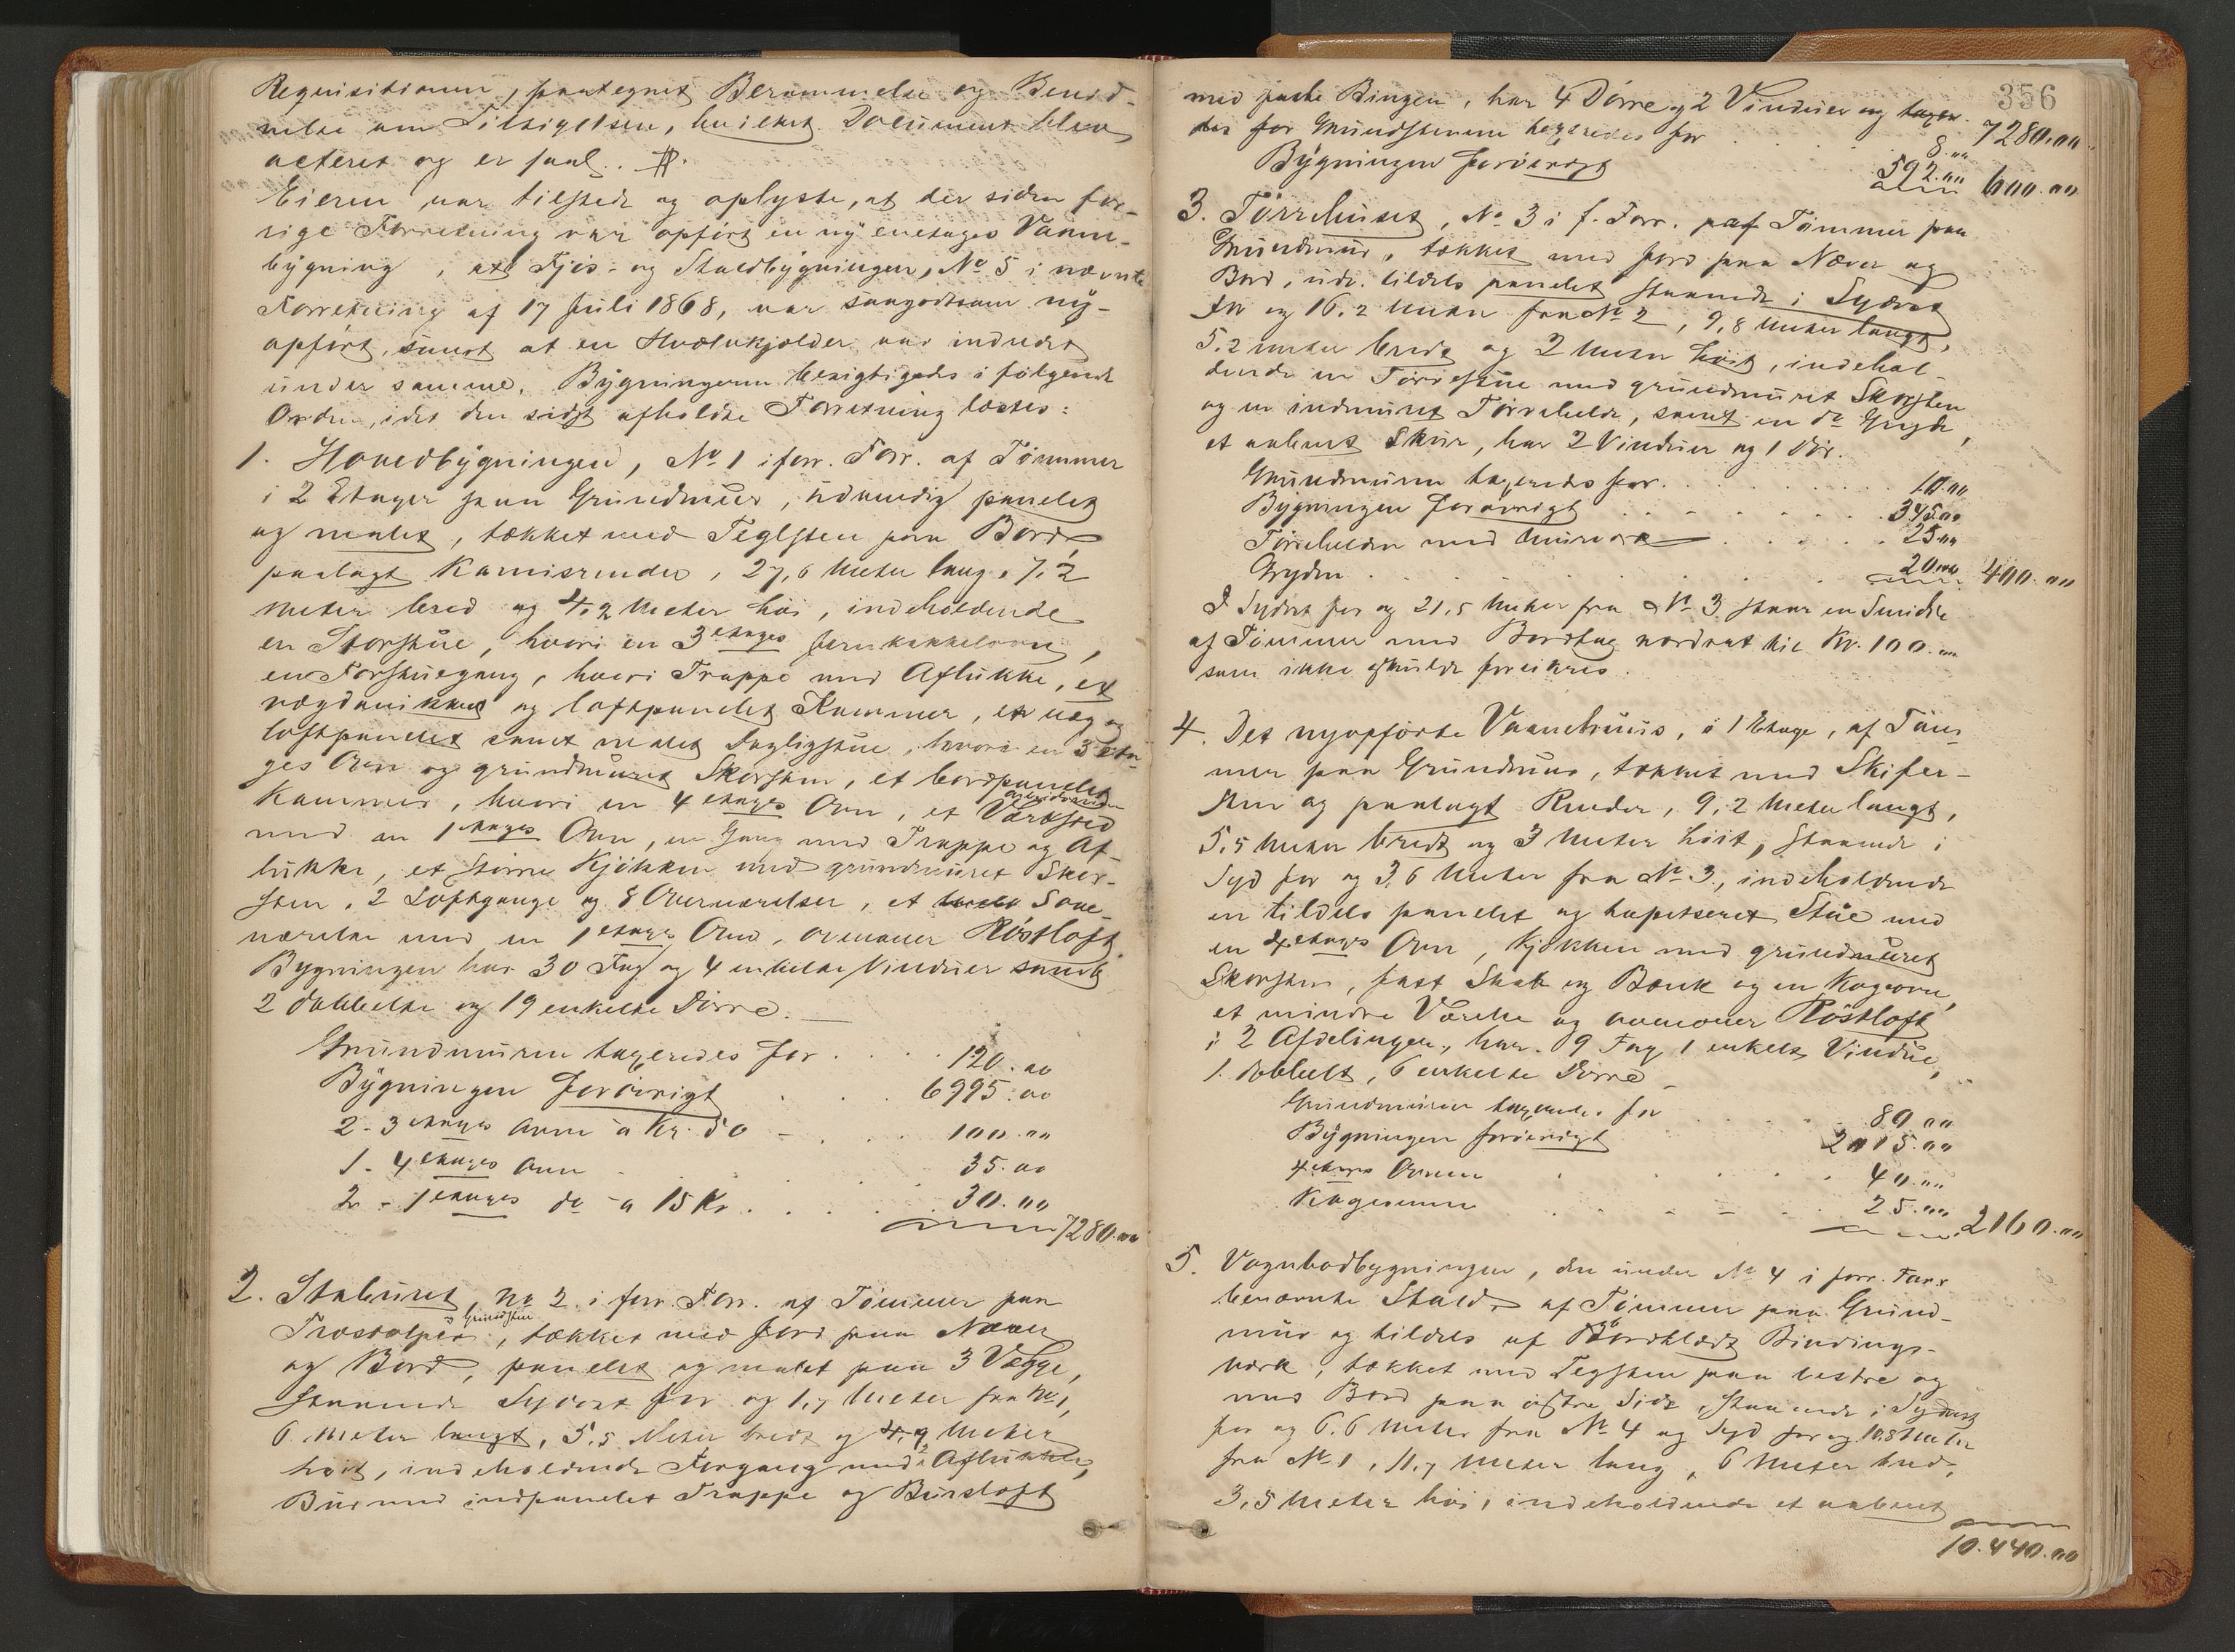 Requisitionen, paategnet Berammelse og Beviid-
nelse om Tilsigelsen, hvilket Document blev
acteret og er saal. #.
Eieren var tilstede og oplyste, at der siden for-
rige Forretning var opført en ny eenetages Vaane-
bygning, at Fjøs- og Staldbygningen, No 5 i nævnte
Forretning af 17 Juli 1868, var saagodtsom ny-
opført, samt at en Hvælvkjælder var indredet
under samme. Bygningerne besigtigedes i følgende
Orden, idet den sidst afholdte Forretning læstes:
1. Hovedbygningen, No 1 i forr. Forr. af Tømmer
i 2 Etager paa Grundmuur, udvendig panelet
og malet, tækket med Teglsten paa Bord
paalagt Karnisrender, 27,6 Meter lang, 7,2
Meter bred og 4,2 Meter høi, indeholdende
en Storstue, hvori en 3 etages Jernkakkelovn,
en Forstuegang, hvori Trappe med Aflukke, et
og loftpanelet Kammer, en væg og
loftpanelet samt malet Dagligstue, hvori en 3 eta-
ges Ovn og grundmuret Skorsten, et bordpanelet
Kammer, hvori en 4 etages Ovn, et Værksted
med en 1 etages Ovn, en Gang med Trappe og Af-
lukke, et større Kjøkken med grundmuret Skor-
sten, 2 Loftgange og 8 Oværelser, et Sove-
værelse med en 1 etages Ovn, ovenover Røstloft
Bygningen har 30 Fag og 4 enkelte Vinduer samt
2 dobbelte og 19 enkelte Dørre.
Grundmuren taxeredes for . . . . 120.00
Bygningen forøvrigt . . . 6995.00
2 - 3 etages Ovne a Kr. 50 - . . . 100.00
1 - 4 etages Ovn . . . 35.00
2 - 1 etages do a 15 Kr. . . . 30.00
7280.00
2. Stabured, No 2 i forr. Forr. af Tømmer paa
Grundsten
Træstolper, tækket med Jord paa Næver
og Bord, panelet og malet paa 3 Vægge,
staaende Sydost for og 1,7 Meter fra No 1,
6 Meter langt, 5,5 Meter bredt og 4,9 Meter
høit, indeholdende Forgang med 2 Aflukker,
Bur med indpanelet Trappe og Bursloft
356
med faste Binger, har 4 Dørre og 2 Vinduer og taxer- 7280.00
des for Grundstenene taxeredes for . . . 8.00
Bygningen forøvrigt 592.00 600.00
3. Tørrehuset, No 3 i f. Forr. af Tømmer paa
Grundmur, tækket med Jord paa Næver og
Bord, udv. tildels panelet staaende i Sydost
for og 16,2 Meter fra No 2, 9,8 Meter langt,
5,2 Meter bredt og 2 Meter høit, indehol-
dende en Tørrestue med grundmuret Skorsten
og en indmuret Tørrehelde, samt en do Gryde,
et aabent Skur, har 2 Vinduer og 1 Dør.
Grundmuren taxeredes for . . . 10.00
Bygningen forøvrigt . . . 345.00
Tørrehelden med Murværk . . . 25.00
Gryden . . . 20.00 400.00
I Sydost for og 21,5 Meter fra No 3 staar en Smidie
af Tømmer med Bordtag værdsat til Kr. 100.00
som ikke skulde forsikres.
4. Det nyopførte Vaanehuus, i 1 Etage, af Tøm-
mer paa Grundmur, tækket med Skifer-
sten og paalagt Render, 9,2 Meter langt,
5,5 Meter bredt og 3 Meter høit, staaende i
Syd for og 3,6 Meter fra No 3, indeholdende
en tildels panelet og tapetseret Stue med
en 4 etages Ovn, Kjøkken med grundmuret
Skorsten, fast Skab og Bænk og en Kogeovn,
et mindre Værelse og ovenover Røstloft
i 2 Afdelinger, har 9 Fag 1 enkelt Vindue,
1 dobbelt, 6 enkelte Dørre
Grundmuren taxeredes for . . . 80.00
Bygningen forøvrigt . . . 2015.00
4 etages Ovnen . . . 40.00
Kogeovnen . . . 25.00 2160.00
5. Vognbodbygningen, den under No 4 i forr. Forr
benævnte Stald, af Tømmer paa Grund-
mur og tildels af Bordklædt Bindings-
værk, tækket med Teglsten paa vestre og
med Bord paa østre Side, staaende i Sydost
for og 6,6 Meter fra No 4 og Syd for og 10,8 Meter
fra No 1, 11,7 Meter lang, 6 Meter bred,
3,5 Meter høi, indeholdende et aabent
10.440.00